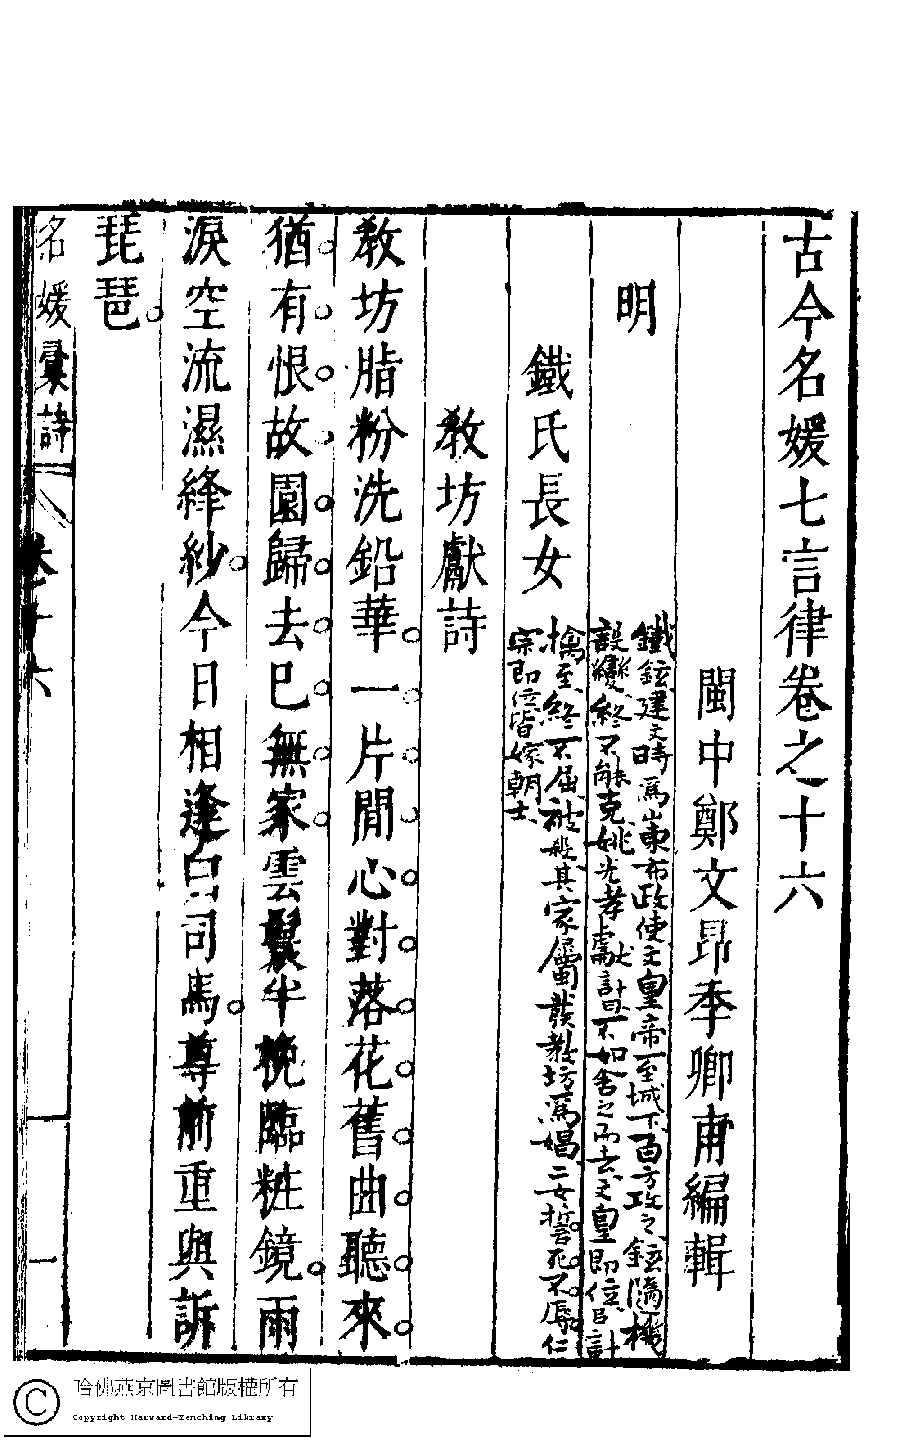 古今名媛七言律卷之十六
閩中鄭文昂季卿甫編輯
明
鐵鉉建文時為山東布政使文皇帝至城下百方攻之鉉隨機
設變終不能克姚光孝獻計曰不如舍之而去文皇即位以計
鐵氏長女
擒至終不屈被殺其家屬發教坊為娼二女誓死不辱仁
宗即位皆嫁朝士
教坊獻詩
教坊脂粉洗鉛華一片閒心對落花舊曲聽來
猶有恨故園歸去已無家雲鬟半挽臨粧鏡雨
淚空流濕絳紗今日相逢白司馬尊前重與訴
琵琶
名媛彙詩
卷十六
一
哈佛燕京圖書館版權所有
Copyright Harvard-Yenching Library